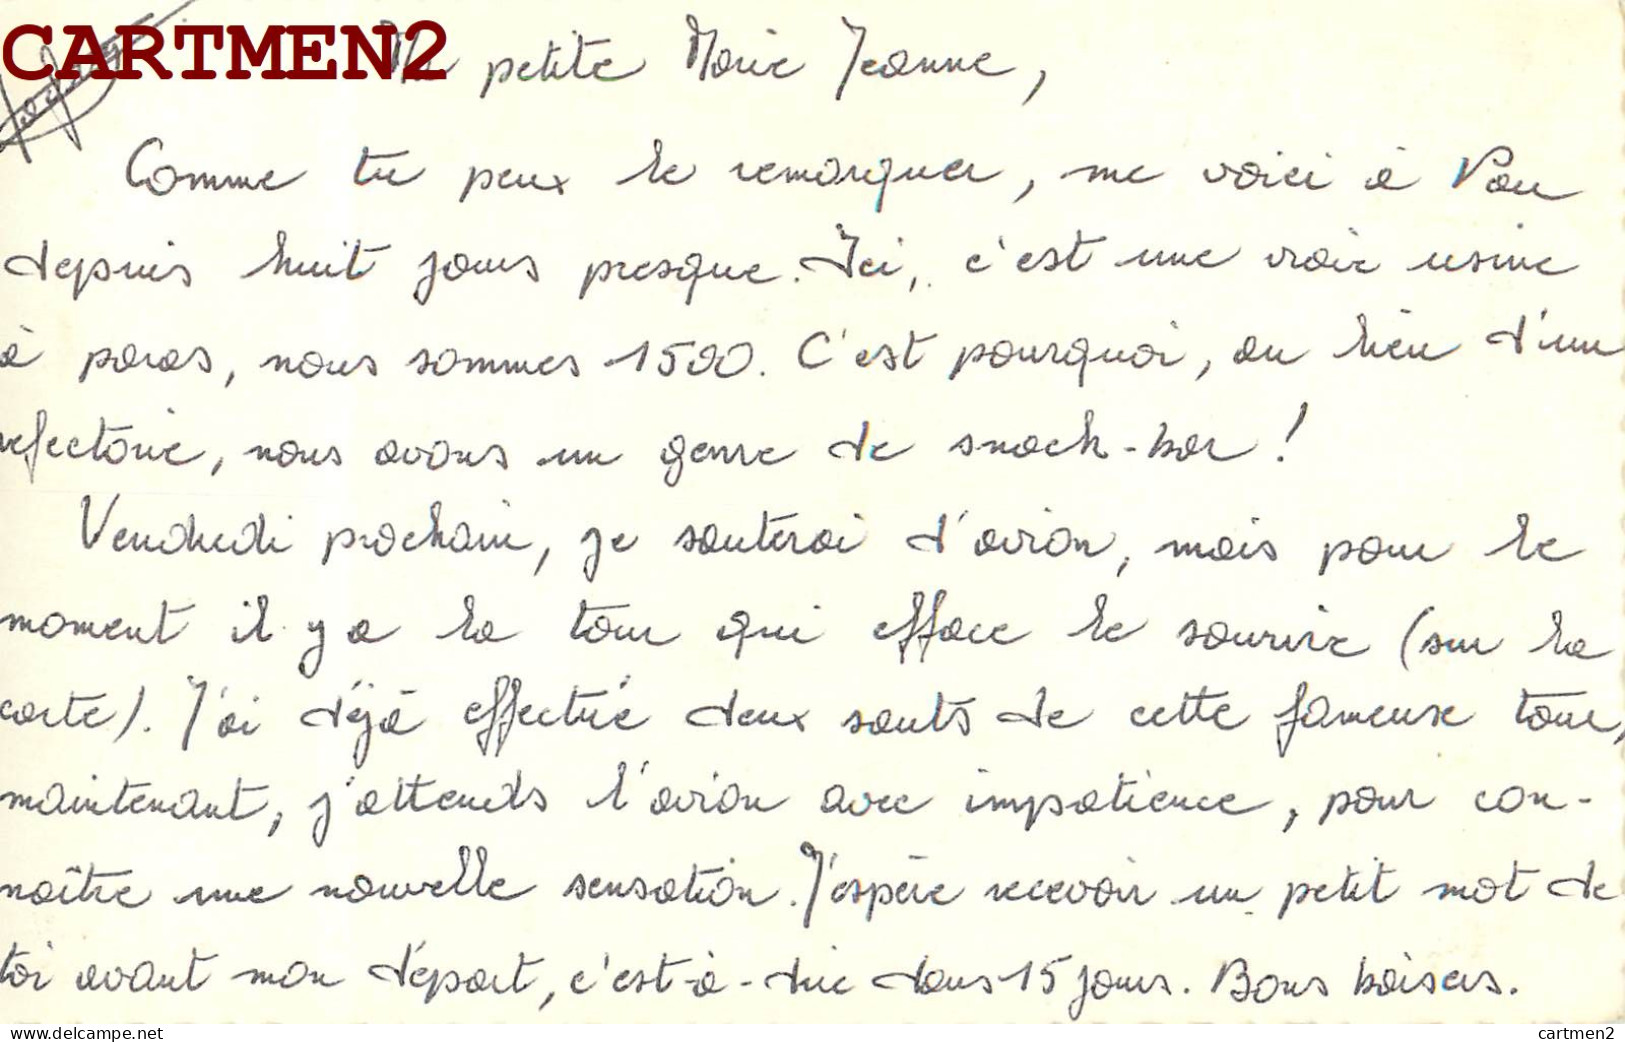 CARTMEN2
Ma petite Marie Jeanne,
Comme tu peux le remarquer, me voici à Pau
depuis huit jours presque. Ici, c'est une vraie usine
à paras, nous sommes 1500. C'est pourquoi, au lieu d'un
refectoire, nous avons un genre de snack-bar !
Vendredi prochain, je sauterai d'avion, mais pour le
moment il y a la tour qui efface le sourire (sur la
carte). J'ai déjà effectué deux sauts de cette fameuse tour,
maintenant, j'attends l'avion avec impatience, pour con-
naître une nouvelle sensation. J'espère recevoir un petit mot de
toi avant mon départ, c'est-à-dire dans 15 jours. Bons baisers.
delcampe.net
cartmen2